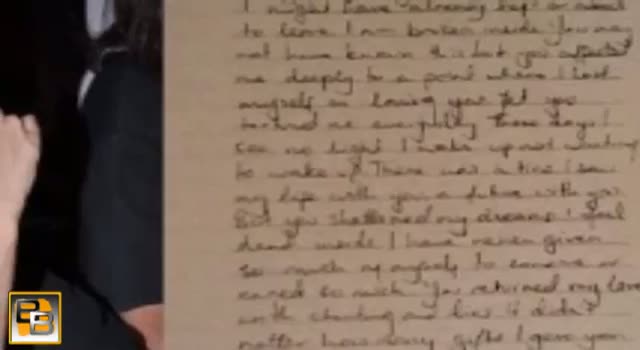 I might have already
to leave I am broken inside You may
not have known this but you affected
me deeply to a point where I lost
myself in loving you Yet you
tortured me everyday These days I
see no light I wake up not wanting
to wake up There was a time I saw
my life with you a future with you
But you shattered my dreams I feel
dead inside I have never given
so much of myself to someone or
cared so much You returned my love
with cheating and lies It didn't
matter how many gifts I gave you